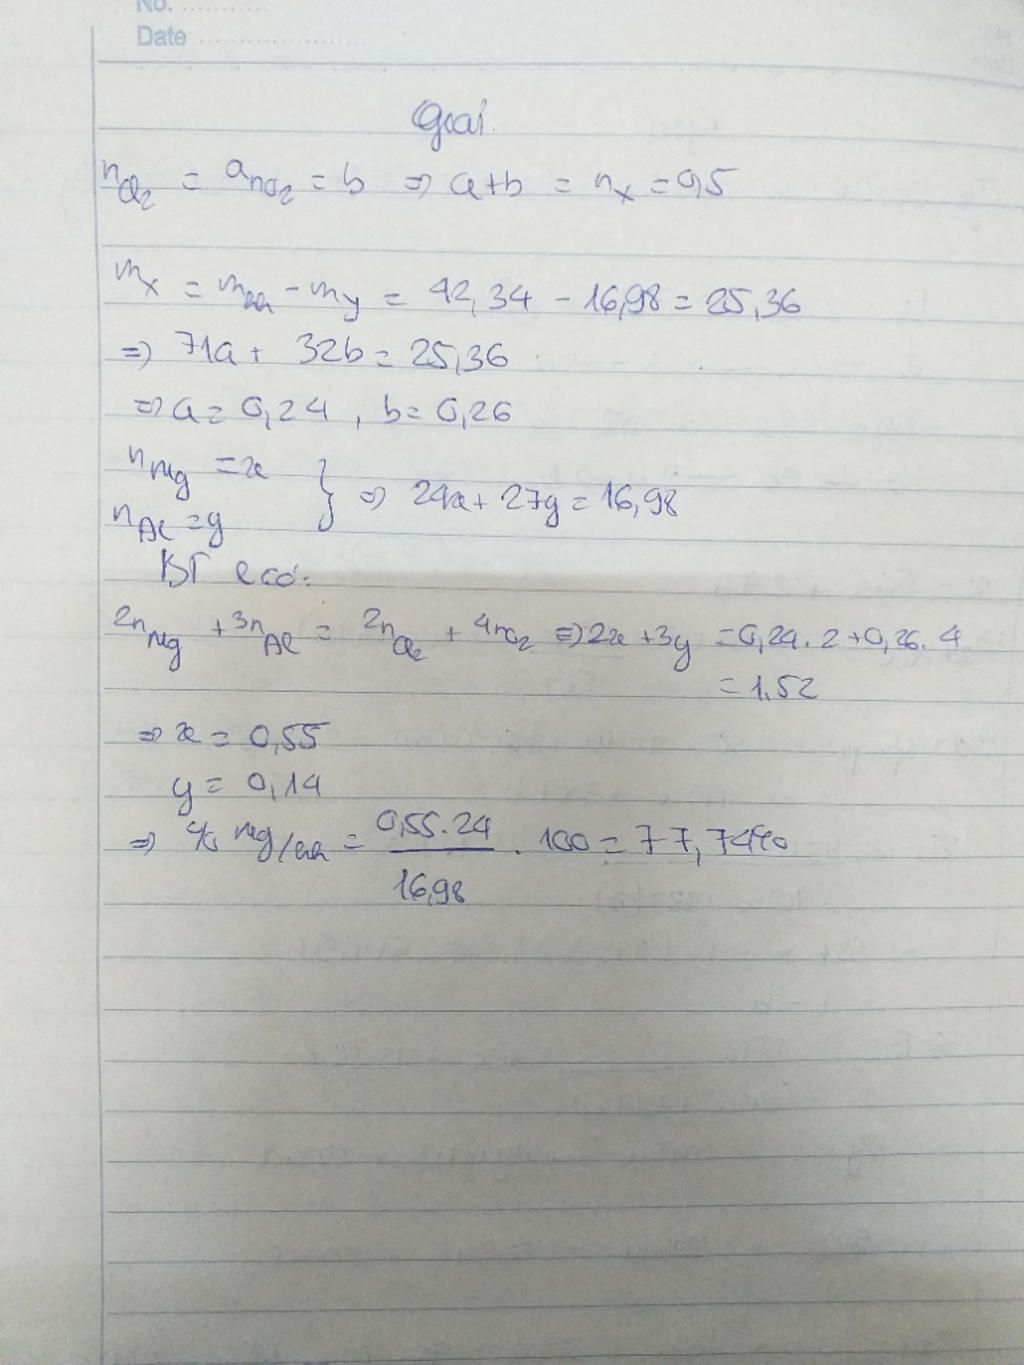 No. ............
Date .....................
Giải
n Cl2 = a n O2 = b => a+b = nx = 0,5
mx = m rắn - my = 42,34 - 16,98 = 25,36
=> 71a + 32b = 25,36
=> a = 0,24 , b = 0,26
n Mg = x
n Al = y } => 24x + 27y = 16,98
BT e có:
2n Mg + 3n Al = 2n Cl2 + 4n O2 => 2x + 3y = 0,24.2+0,26.4
= 1,52
=> x = 0,55
y = 0,14
=> % Mg/rắn = 0,55.24 / 16,98 . 100 = 77,74%